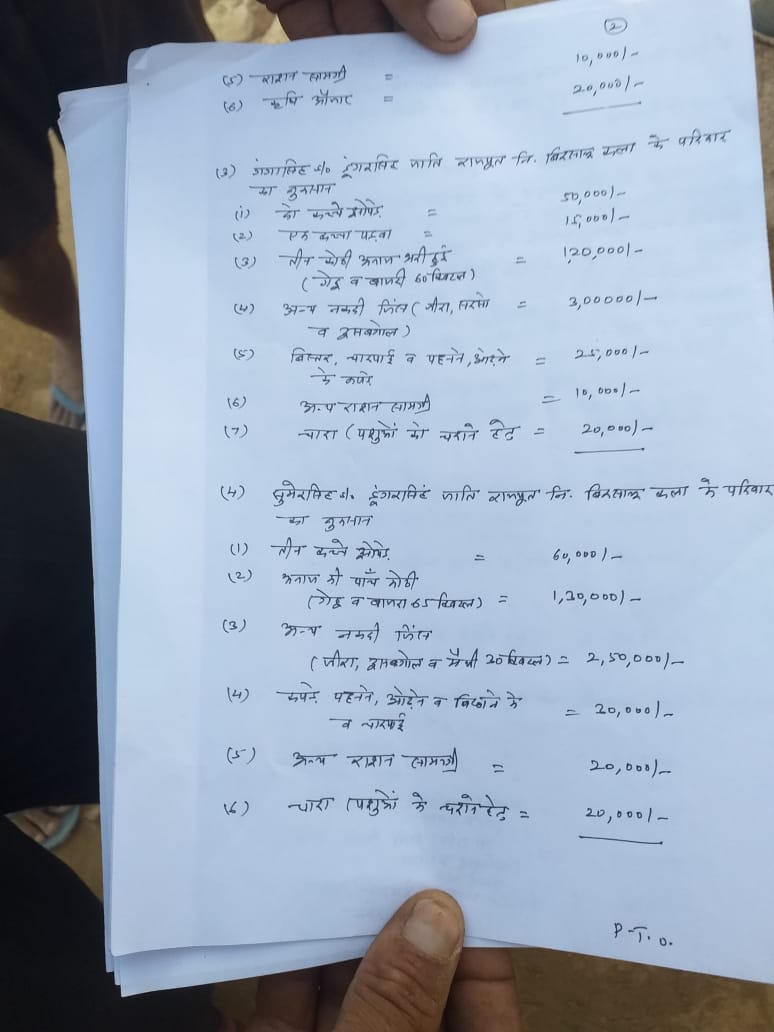 (2)
(5) राशन सामग्री = 10,000/-
(6) कृषि औजार = 20,000/-
(3) गंगासिंह s/o डूंगरसिंह जाति राजपूत नि. बिरसालू कला के परिवार
का नुकसान
(1) दो कच्चे झोंपे = 50,000/-
(2) एक कच्चा पड़वा = 15,000/-
(3) तीन कोठी अनाज भरी हुई = 1,20,000/-
(गेहू व बाजरी 60 क्विंटल)
(4) अन्य नकदी जिंस (जीरा, सरसो = 3,00000/-
व इसबगोल)
(5) बिस्तर, चारपाई व पहनने, ओढ़ने = 25,000/-
के कपड़े
(6) अन्य राशन सामग्री = 10,000/-
(7) चारा (पशुओं को चराने हेतु = 20,000/-
(4) सुमेरसिंह s/o डूंगरसिंह जाति राजपूत नि. बिरसालू कला के परिवार
का नुकसान
(1) तीन कच्चे झोंपे = 60,000/-
(2) अनाज की पाँच कोठी
(गेहू व बाजरा 65 क्विंटल) = 1,30,000/-
(3) अन्य नकदी जिंस
(जीरा, इसबगोल व मैथी 20 क्विंटल) = 2,50,000/-
(4) कपड़े पहनने, ओढ़ने व बिछाने के = 20,000/-
व चारपाई
(5) अन्य राशन सामग्री = 20,000/-
(6) चारा (पशुओं के चराने हेतु = 20,000/-
P.T.O.